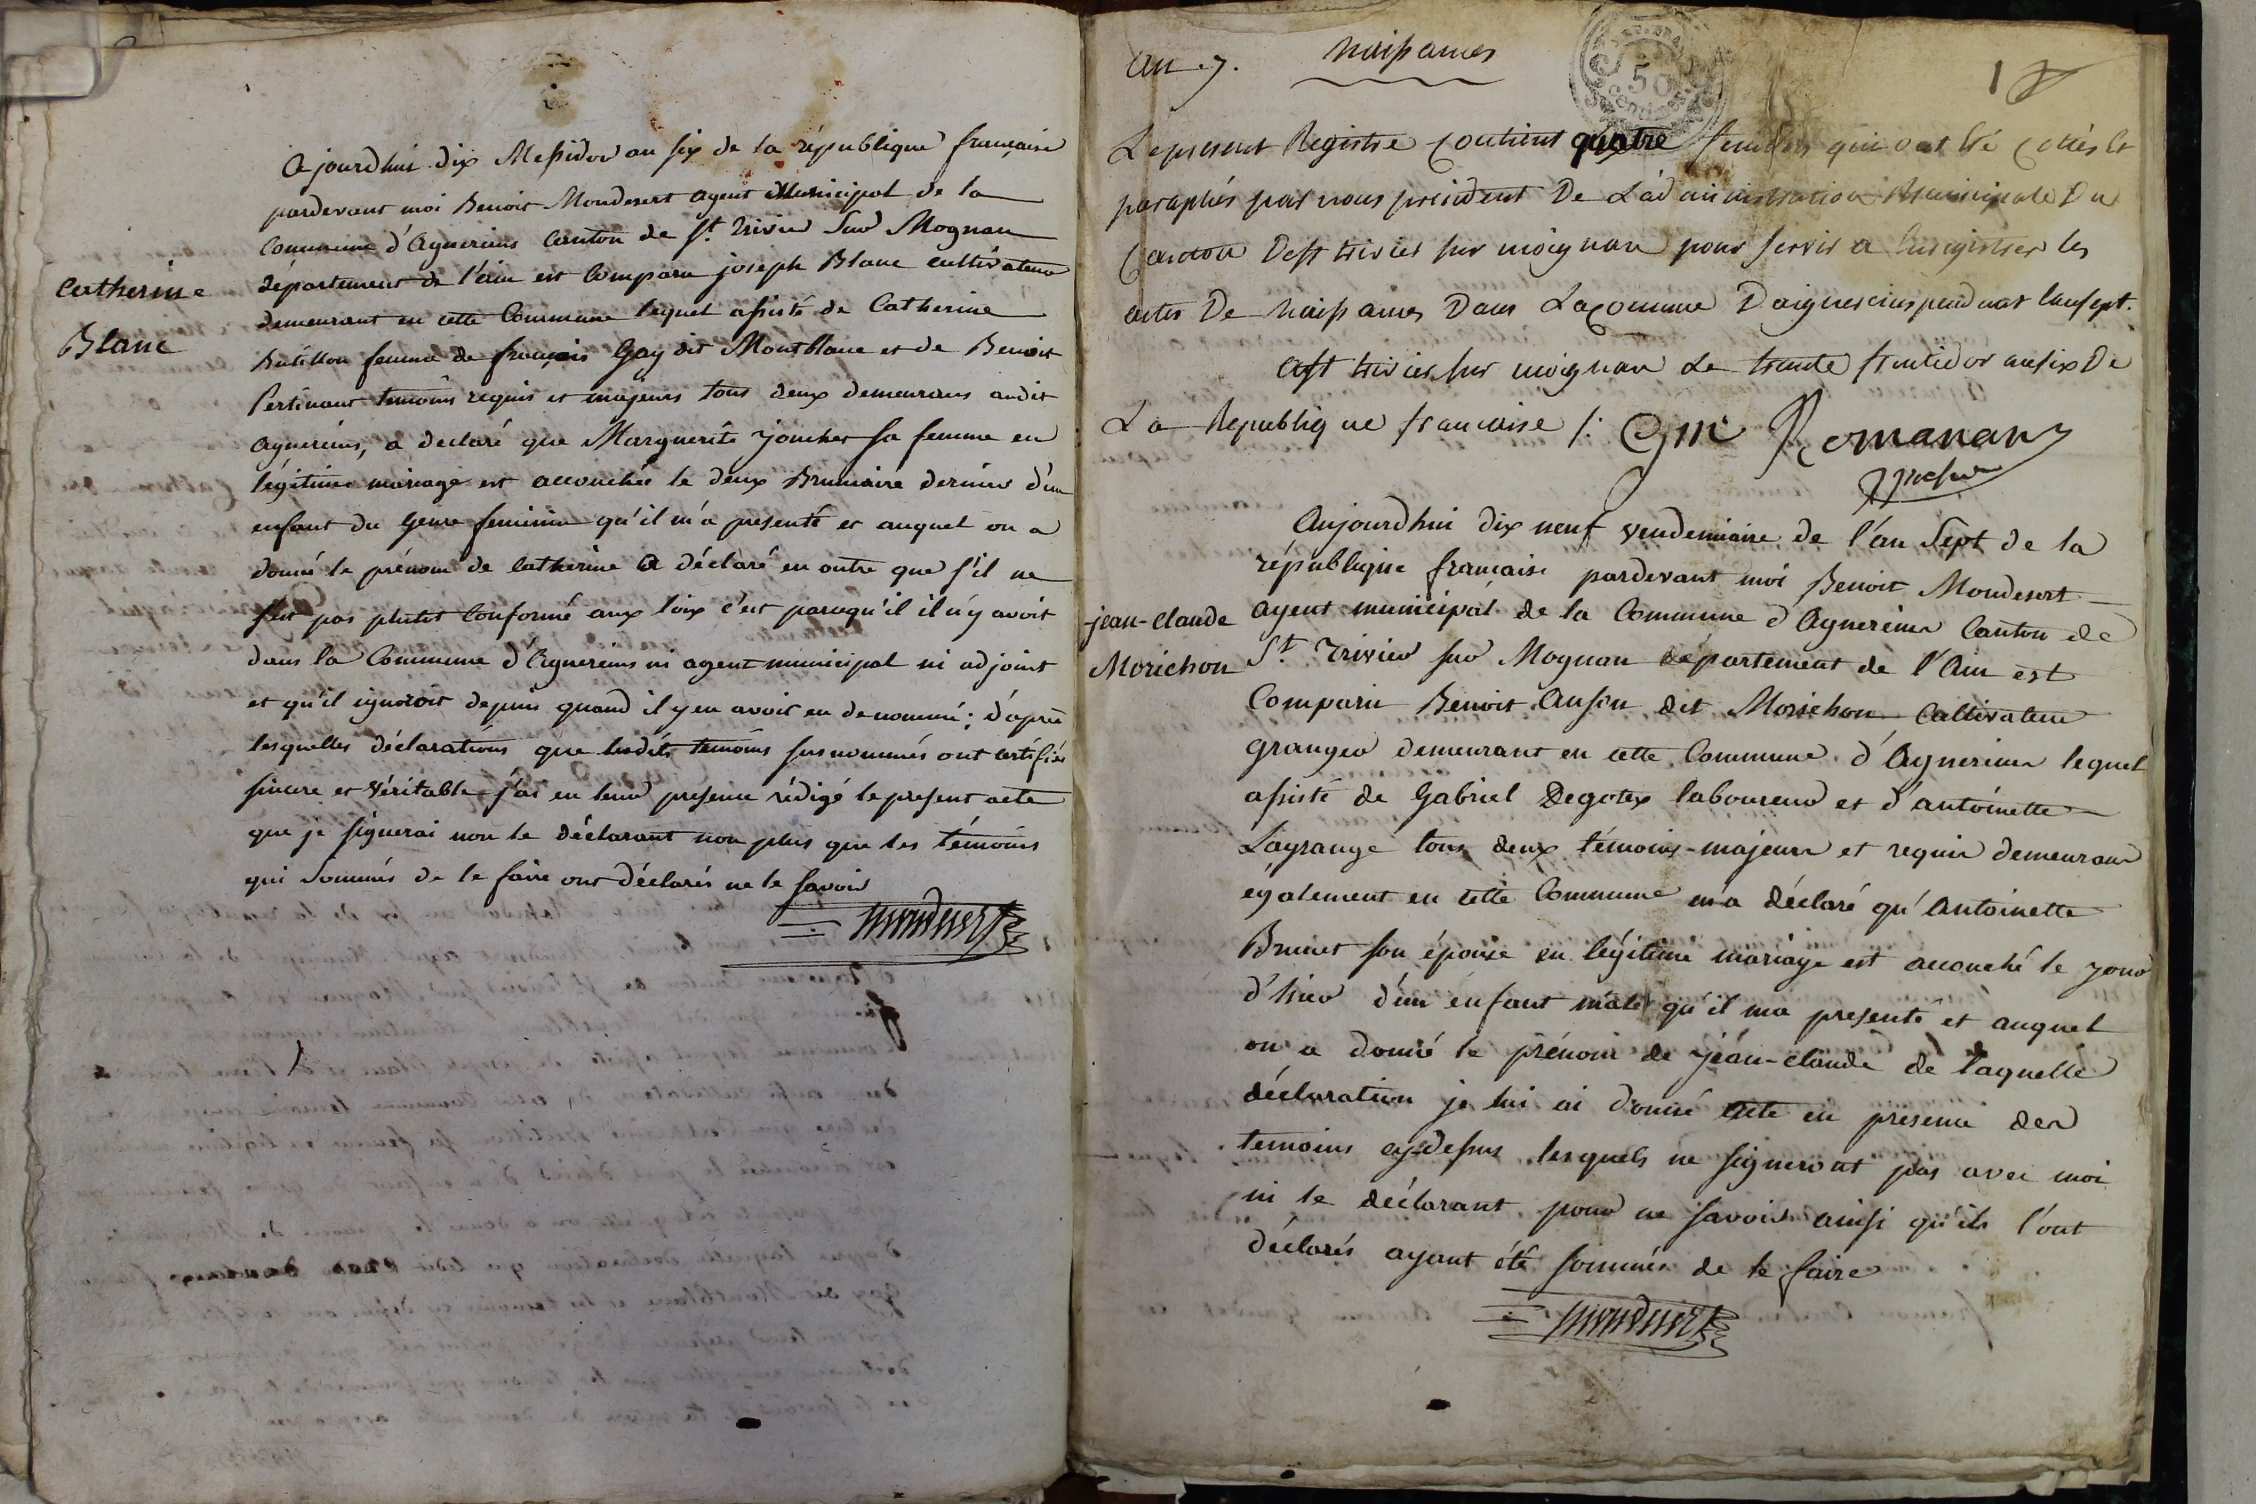 Catherine
Blanc
Cejourdhui dix Messidor an six de la république française
pardevant moi Benoit Mondesert agent Municipal de la
Commune d'Agnereins canton de St. Trivier Sur Mognan
département de l'ain est Comparu joseph Blanc cultivateur
demeurant en cette Commune lequel assisté de Catherine
femme de françois Gay dit Montblanc et de Benoit
Pertinant temoins requis et majeurs tous deux demeurans audit
agnereins, a declaré que Marguerite jouchet sa femme en
légitime mariage est accouchée le deux Brumaire dernier d'un
enfant du genre feminin qu'il m'a presenté et auquel on a
donné le prénom de Catherine a déclaré en outre que s'il ne
s'est pas plutot Conformé aux loix c'est parcequ'il il n'y avoit
dans la Commune d'Agnereins ni agent municipal ni adjoint
et qu'il ignoroit depuis quand il y en avoit eu de nommé; d'après
lesquelles déclarations que lesdits temoins susnommés ont certifiés
sincere et Véritable j'ai en leur presence rédigé le present acte
que je signerai non le déclarant non plus que les témoins
qui Sommés de le faire ont déclarés ne le savoir
Mondesert
an 7. Naissances
50
centimes
1
Le present Registre Contient quatre feuillets qui ont été cottés et
paraphés par nous président De L'administration Municipale Du
Canton De st trivier sur moignan pour servir a Enregistrer les
actes De Naissances Dans La Commune Daignereins pendant l'an sept.
a st trivier sur moignan Le trente fructidor an six De
La Republique francaise /: Romanans
Aujourdhui dix neuf vendemiaire de l'an Sept de la
république francaise pardevant moi Benoit Mondesert
jean-claude
Morichon
agent municipal de la Commune d'Agnereins Canton de
St. Trivier sur Mognan département de l'Ain est
Comparu Benoit dit Morichon Cultivateur
granger demeurant en cette Commune d'Agnereins lequel
assisté de Gabriel Degotex laboureur et d'antoinette
Lagrange tous deux témoins majeurs et requis demeurans
également en cette Commune m'a déclaré qu'Antoinette
Brunet son épouse en légitime mariage est accouché le jour
d'hier d'un enfant male qu'il m'a presenté et auquel
on a donné le prénom de jean-claude de laquelle
déclaration je lui ai donné acte en presence des
temoins cy-dessus lesquels ne signeront pas avec moi
ni le déclarant pour ne savoir ainsi qu'ils l'ont
déclarés ayant été sommés de le faire
Mondesert